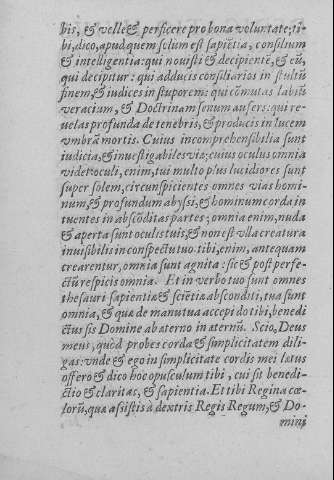 bis, & velle & perficere pro bona voluntate; ti-
bi, dico, apud quem solum est sapiẽtia, consilium
& intelligentia: qui nouisti & decipientẽ, & eũ,
qui decipitur: qui adducis consiliarios in stultũ
finem, & iudices in stuporem: qui cõmutas labiũ
veracium, & Doctrinam senum aufers: qui re-
uelas profunda de tenebris, & producis in lucem
vmbrã mortis. Cuius incomprehensibilia sunt
iudicia, & inuestigabiles viæ; cuius oculus omnia
videt: oculi, enim, tui multo plus lucidiores sunt
super solem, circunspicientes omnes vias homi-
num, & profundum abyssi, & hominum corda in
tuentes in abscõditas partes; omnia enim, nuda
& aperta sunt oculis tuis, & non est vlla creatura
inuisibilis in conspectu tuo. tibi, enim, antequam
crearentur, omnia sunt agnita: sic & post perfe-
ctũ respicis omnia. Et in verbo tuo sunt omnes
thesauri sapientiæ & sciẽtiæ absconditi, tua sunt
omnia, & quæ de manu tua accepi do tibi, benedi
ctus sis Domine ab æterno in æternũ. Scio, Deus
meus, quòd probes corda & simplicitatem dili-
gas: vnde & ego in simplicitate cordis mei lætus
offero & dico hoc opusculum tibi, cui sit benedi-
ctio & claritas, & sapientia. Et tibi Regina cœ-
lorũ, quæ assistis à dextris Regis Regum, & Do-
mini